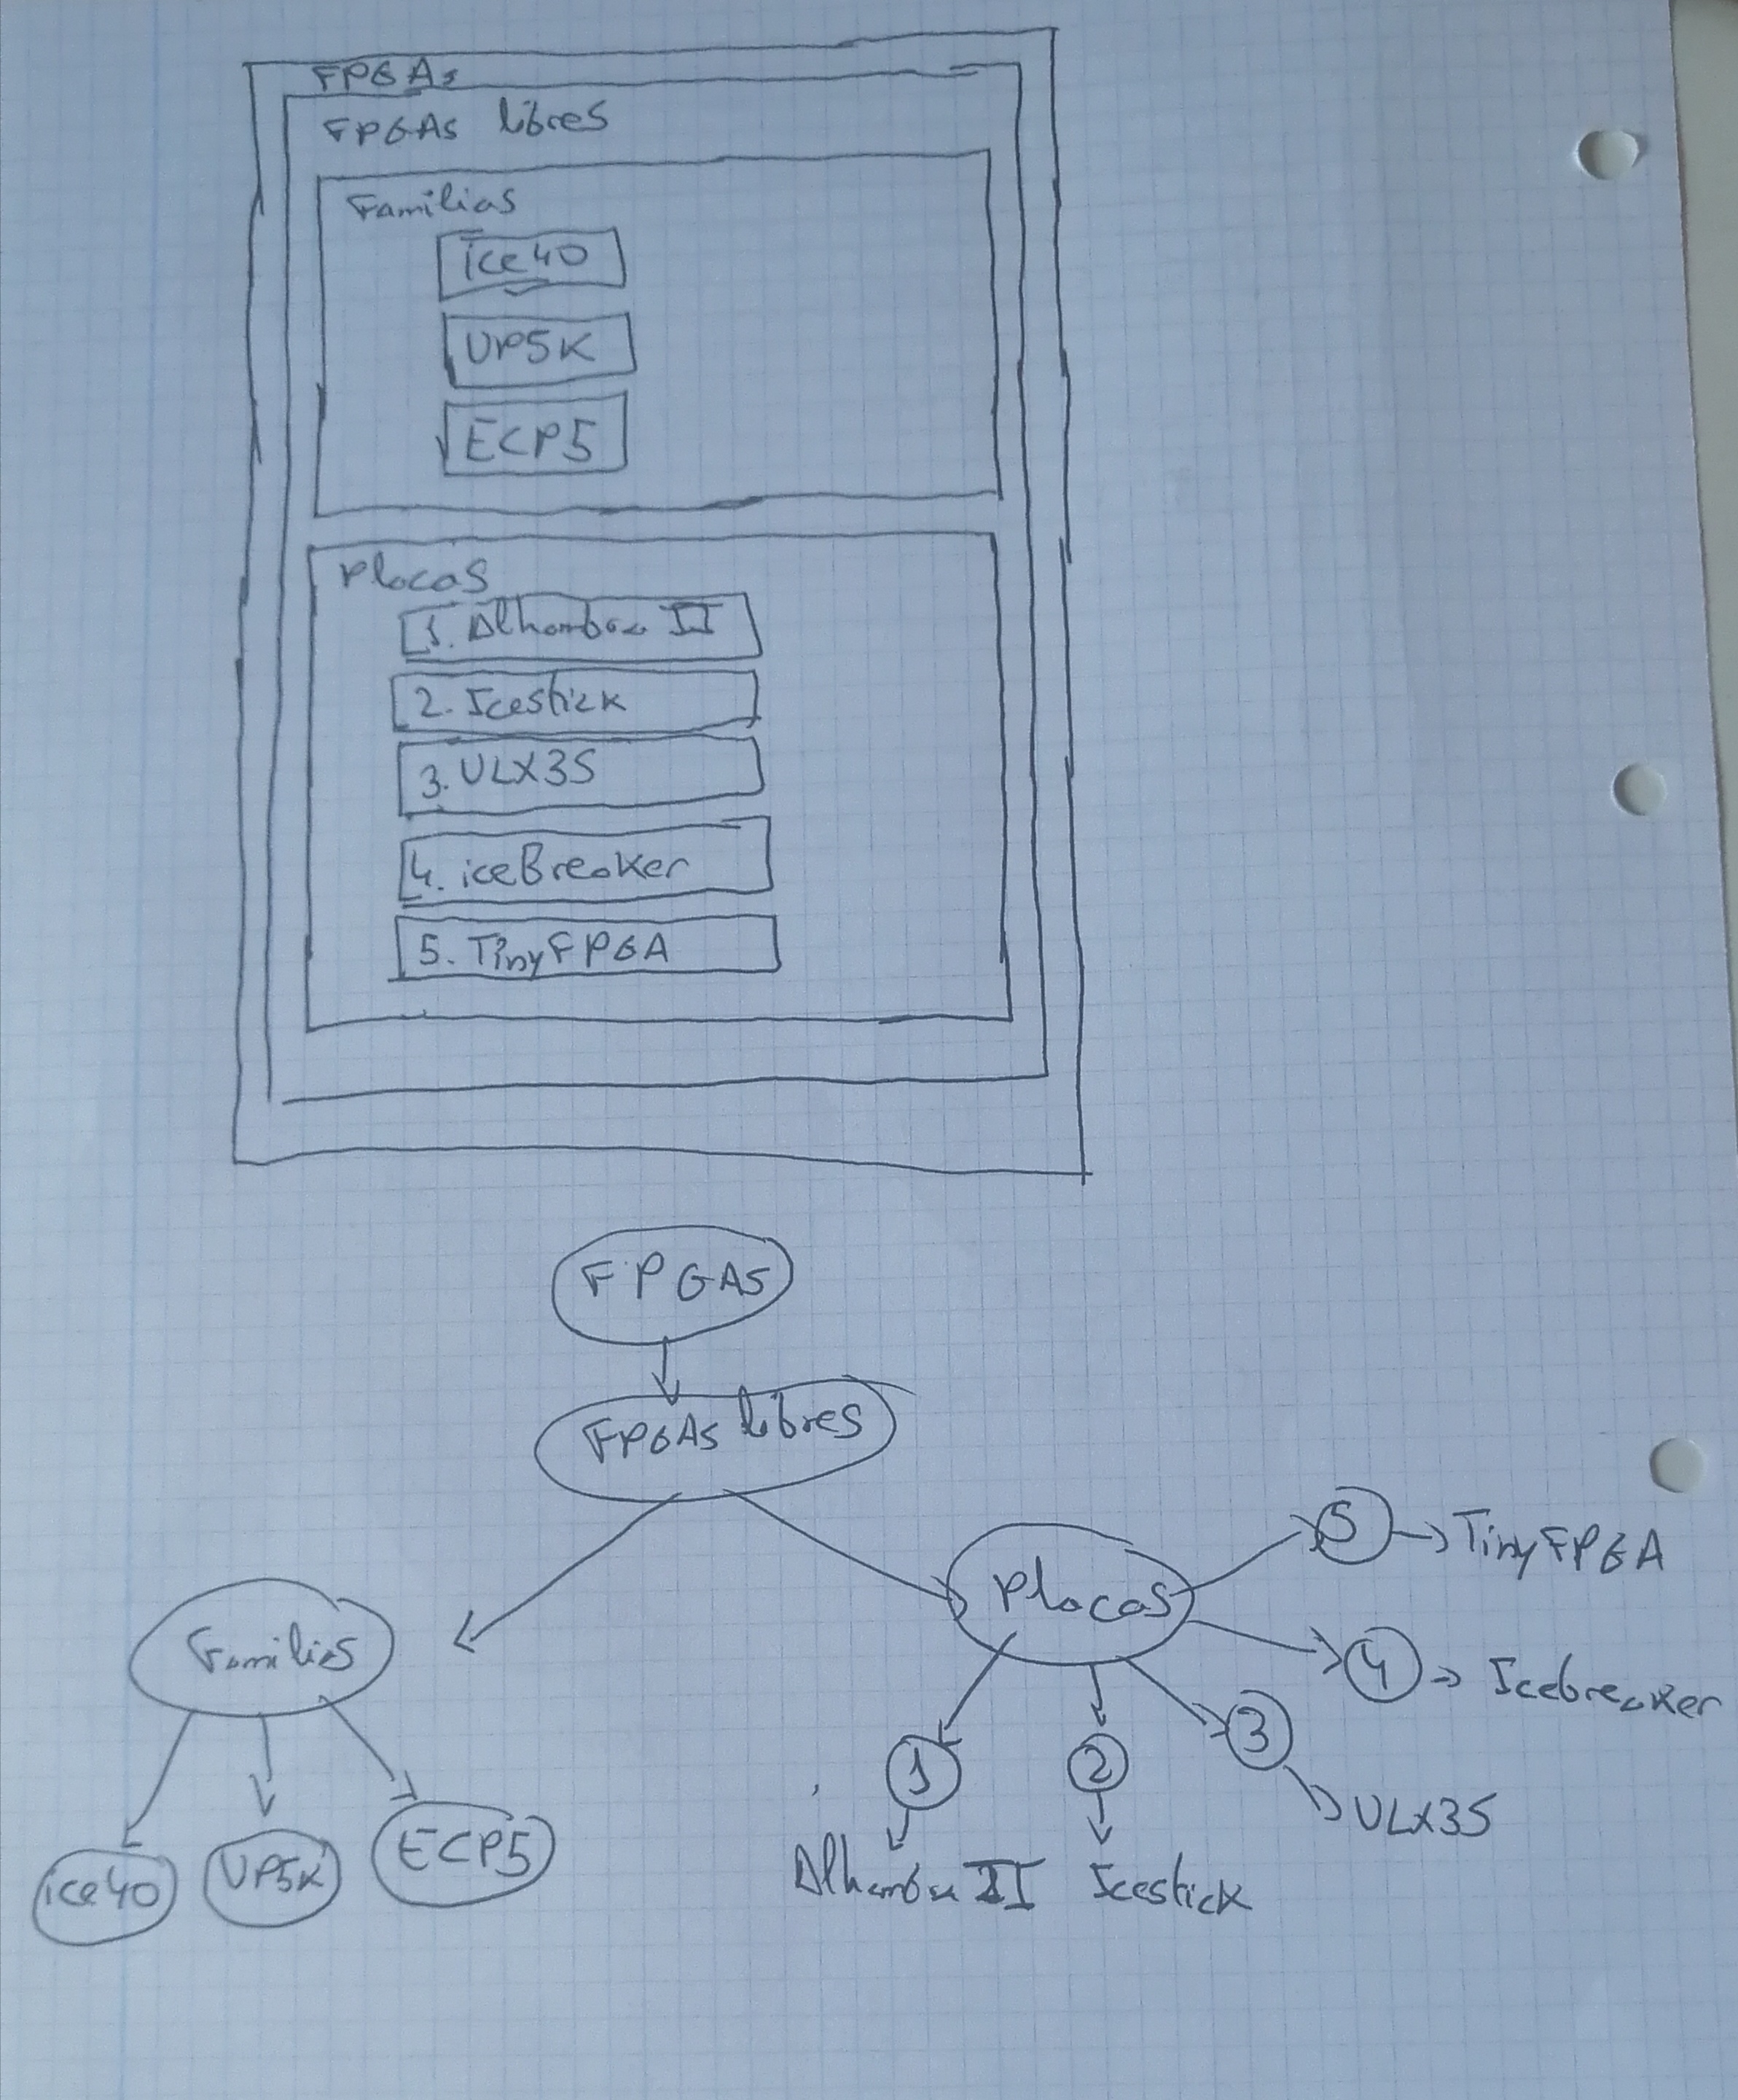 FPGAs
FPGAs libres
Familias
Ice40
UP5K
ECP5
Placas
1. Alhambra II
2. Icestick
3. ULX3S
4. iceBreaker
5. TinyFPGA
FPGAS
FPGAs libres
Familias
ice40
UP5K
ECP5
Placas
5 → TinyFPGA
4 → Icebreaker
3
ULX3S
1
2
Alhambra II
Icestick